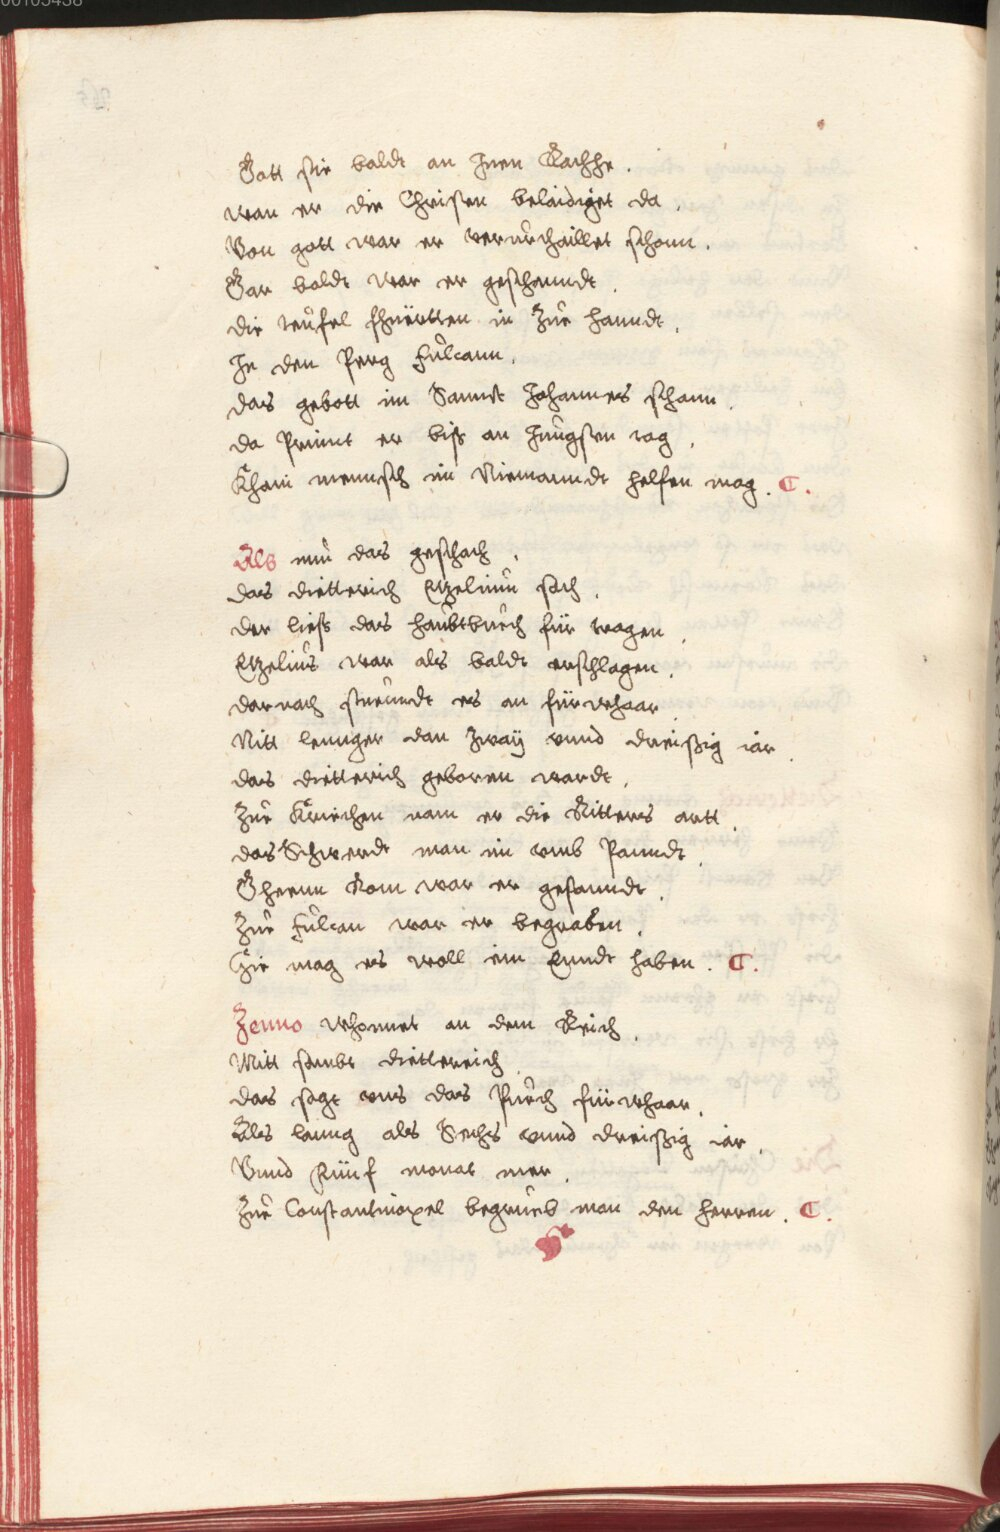 00105438
Gott sie baldt an Inen Rachhe .
wan er die Christen belaidiget da .
Von gott war er verurthaillet schonn .
Gar baldt war er geschenndt .
die teufel fhuertten in Zur hanndt .
In den Perg Fulcann .
das gebott im Sannct Johannes schann .
da Prinnt er biß an Jungsten tag .
Kham mennsch im Niemanndt helfen mag .
Als nun das geschach .
das dietterich Etzelium sach .
der ließ das haubtbuech für tragen .
Etzelius war als baldt erschlagen .
darnach stuendt es an fürwhaar .
Nitt lennger dan Zway vnnd dreissig iar .
das dietterich geboren wardt .
Zue Kriechen nam er die Ritters artt .
das Schwerdt man im vmb Panndt .
Ghenn Rom war er gesanndt .
Zue Fulcan war er begraben .
Hie mag es woll ein Enndt haben .
Zenno whonnet an dem Reich .
Mitt sambt dietterich .
das sagt vns das Puech fürwhaar .
Als lanng als Sechs vnnd dreissig iar .
Vnnd Fünf monat mer .
Zue Constantinopel begrueb man den herren .